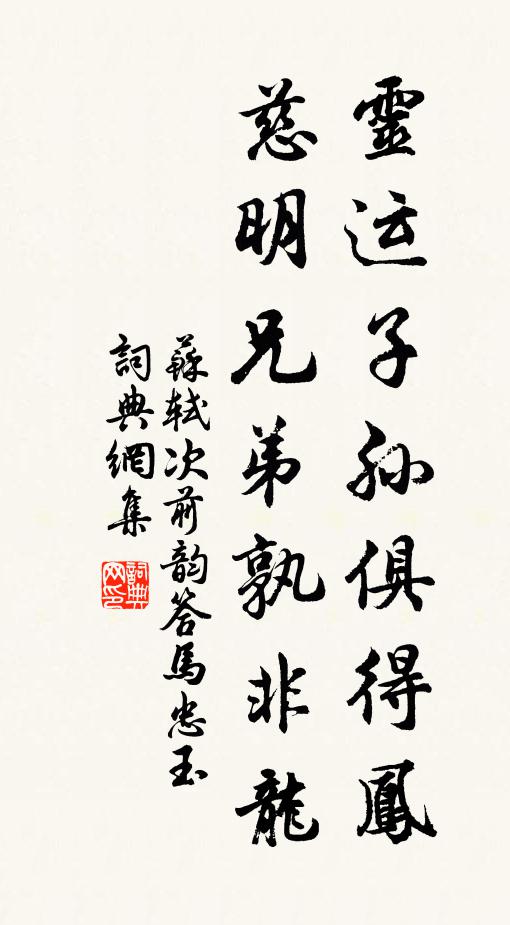 靈运子孙俱得鳳
慈明兄弟孰非龍
蘇軾次前韵答馬忠玉
詞典網集
詞典网印